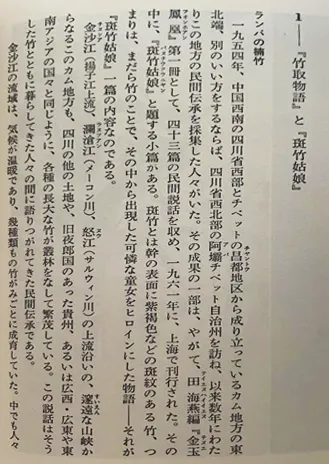 1―『竹取物語』と『斑竹姑娘』
ランパの楠竹
一九五四年、中国西南の四川省西部とチベットの昌都地区から成り立っているカム地方の東
北端、別のいい方をするならば、四川省西北部の阿壩チベット自治州を訪ね、以来数年にわた
りこの地方の民間伝承を採集した人々がいた。その成果の一部は、やがて、田海燕編『金玉
鳳凰』第一冊として、四十三篇の民間説話を収め、一九六一年に、上海で刊行された。その
中に、『斑竹姑娘』と題する小篇がある。斑竹とは幹の表面に紫褐色などの斑紋のある竹、つ
まりは、まだら竹のことで、その中から出現した可憐な童女をヒロインにした物語―それが
『斑竹姑娘』一篇の内容なのである。
金沙江（揚子江上流）、瀾滄江（メーコン川）、怒江（サルウィン川）の上流沿いの、邃遠な山峡か
らなるこのカム地方も、四川の他の土地や、旧夜郎国のあった貴州、あるいは広西・広東や東
南アジアの国々と同じように、各種の長大な竹が叢林をなして繁茂している。この説話はそう
した竹とともに暮らしてきた人々の間に語りつがれてきた民間伝承である。
金沙江の流域は、気候が温暖であり、幾種類もの竹がみごとに成育していた。中でも人々